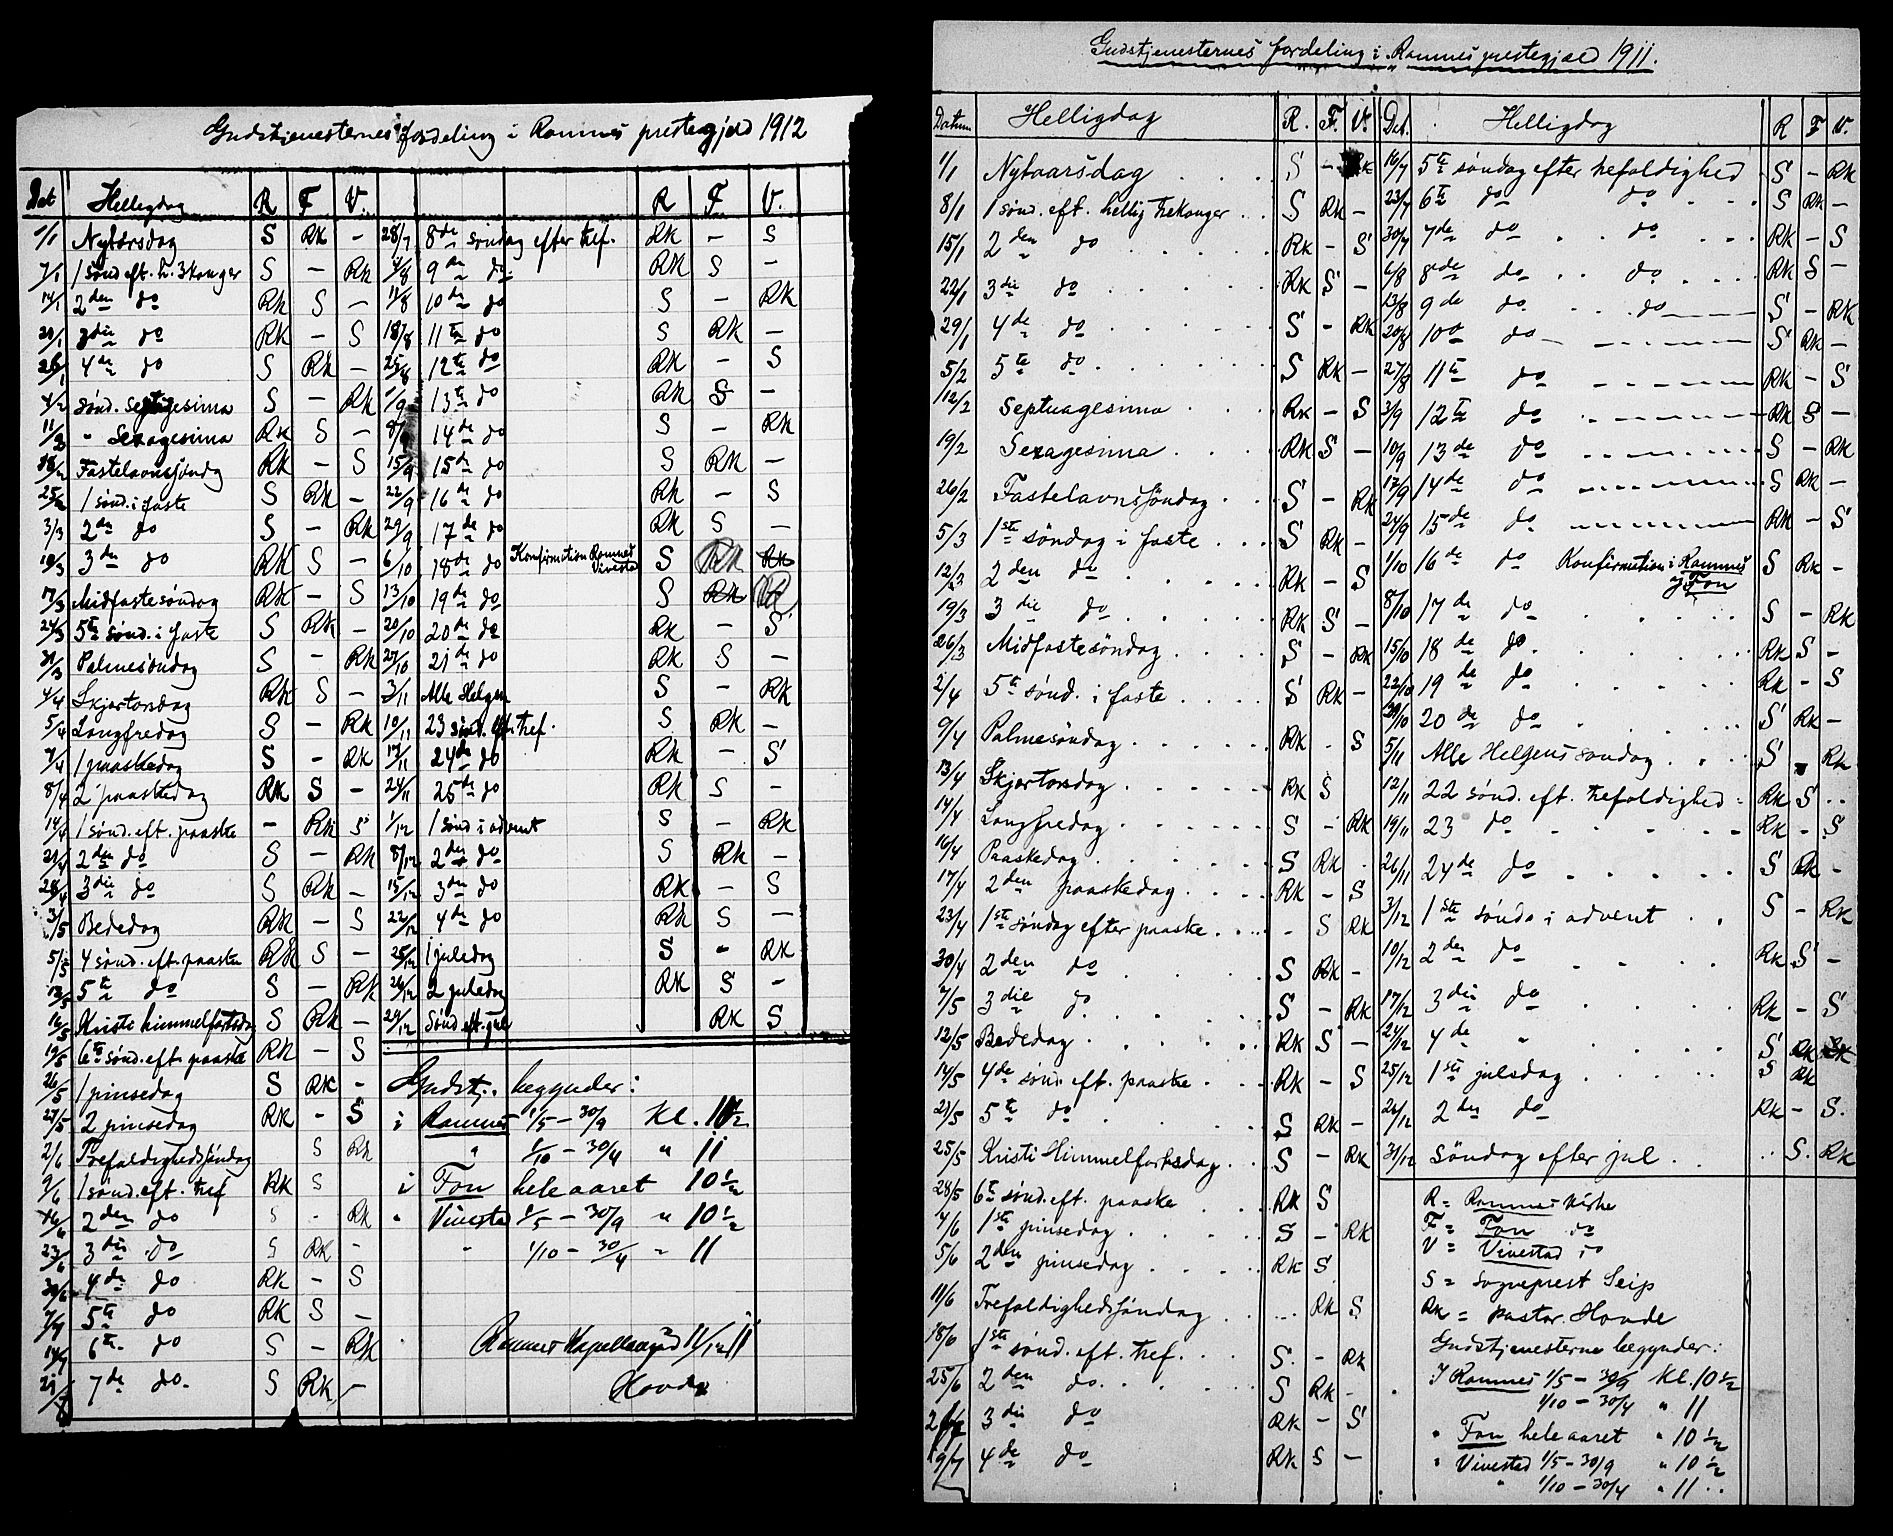 Gudstjenesternes fordeling i Ramnes prestegjeld 1912
Dat Helligdag R F. V. R F. V.
1/1 Nytårsdag S RK -
7/1 1 sønd eft. h. 3 konger S - RK
14/1 2den do RK S -
21/1 3die do RK - S
28/1 4de do S RK -
4/2 sønd. septuagesima S - RK
11/2 " Sexagesima RK S -
18/2 Fastelavnssøndg RK - S
25/2 1 sønd. i faste S RK -
3/3 2den do S - RK
10/3 3den do RK S -
17/3 Midfastesøndag RK - S
24/3 5te sønd. i faste S RK -
31/3 Palmesøndag S - RK
4/4 Skjærtorsdag RK S -
5/4 Langfredag S - RK
7/4 1 paaskedag S - RK
8/4 2 paaskedag RK S -
14/4 1 sønd. eft. paaske - RK S
21/4 2den do S - RK
28/4 3die do S RK -
3/5 Bededag RK - S
5/5 4 sønd. eft. paaske RK S -
12/5 5te do S - RK
16/5 Kristi himmelfartsdag S RK -
19/5 6te sønd. eft. paaske RK - S
26/5 1 pinsedag S RK -
27/5 2 pinsedag RK - S
2/6 Trefoldighedssøndag S RK
9/6 1 sønd. eft. tref RK S
16/6 2den do S - RK
23/6 3die do S RK -
30/6 4de do RK - S
7/7 5te do RK S -
14/7 6te do S - RK
21/7 7de do. S RK -
28/7 8de søndag efter tref. RK - S
4/8 9de do RK S -
11/8 10de do S - RK
18/8 11te do S RK -
25/8 12te do RK - S
1/9 13te do RK S -
8/9 14de do S - RK
15/9 15de do S RK -
22/9 16de do RK - S
29/9 17de do RK S -
6/10 18de do Konfirmation Ramnes Vivestad S RK RK
13/10 19de do S RK
20/10 20de do RK - S
27/10 21de do RK S -
3/11 Alle Helgen S - RK
10/11 23 sønd. eft. tref. S RK -
17/11 24de do RK - S
24/11 25de do RK S -
1/12 1 sønd i advent S - RK
8/12 2den do S RK -
15/12 3den do RK - S
22/12 4de do RK S -
25/12 1 juledag S - RK
26/12 2 juledag RK S -
29/12 Sønd eft. jul RK S
Gudstj. begynder:
i Ramnes 1/5 - 30/9 Kl. 10 1/2
" 1/10 - 30/4 " 11
i Fon hele aaret 10 1/2
" Vivestad 1/5 - 30/9 " 10 1/2
" 1/10 - 30/4 " 11
Ramnes Kapellangd 11/12 11
Hovde
Gudstjenesternes fordeling i Ramnes prestegjeld 1911.
Datum Helligdag R. F. V. Dat. Helligdag R F V.
1/1 Nytaarsdag S - RK
8/1 1 sønd. eft. hellig trekonger S RK -
15/1 2den do RK - S
22/1 3die do RK S -
29/1 4de do S - RK
5/2 5te do S RK -
12/2 Septuagesima RK - S
19/2 Sexagesima RK S -
26/2 Fastelavnssøndag S - RK
5/3 1ste søndag i faste S RK -
12/3 2den do RK - S
19/3 3die do RK S -
26/3 Midfastesøndag S - RK
2/4 5te sønd. i faste S RK -
9/4 Palmesøndag RK - S
13/4 Skjærtorsdag RK S
14/4 Langfredag S - RK
16/4 Paaskedag S RK
17/4 2den paaskedag RK - S
23/4 1ste søndag efter paaske - S RK
30/4 2den do S RK -
7/5 3die do S - RK
12/5 Bededag RK S -
14/5 4de sønd. eft. paaske RK - S
21/5 5te do S RK -
25/5 Kristi Himmelfartsdag S - RK
28/5 6te sønd. eft. paaske RK S
4/6 1ste pinsedag S - RK
5/6 2den pinsedag RK S
11/6 Trefoldighedssøndag RK S
18/6 1ste sønd. eft. tref. S - RK
25/6 2den do S RK -
2/7 3die do RK - S
9/7 4de do RK S -
16/7 5te søndag efter trefoldighed S - RK
23/7 6te do do S RK -
30/7 7de do do RK - S
6/8 8de do do RK S -
13/8 9de do do S - RK
20/8 10de do S RK -
27/8 11te do RK - S
3/9 12te do RK S -
10/9 13de do S - RK
17/9 14de do S RK -
24/9 15de do RK - S
1/10 16de do Konfirmation i Ramnes S RK -
og Fon
8/10 17de do S - RK
15/10 18de do RK S -
22/10 19de do RK - S
29/10 20de do S RK -
5/11 Alle Helgens søndag S - RK
12/11 22 sønd. eft. trefoldighed RK S
19/11 23 do RK - S
26/11 24de do S RK -
3/12 1ste sønds i advent S - RK
10/12 2den do RK S -
17/12 3die do RK - S
24/12 4de " S RK RK
25/12 1ste julsdag S RK
26/12 2den do RK - S.
31/12 Søndag efter jul S. RK
R = Ramnes kirke
F = Fon do
V = Vivestad do
S = sogneprest Seip
RK = Pastor Hovde
Gudstjenesterne begynder:
I Ramnes 1/5 - 30/9 Kl. 10 1/2
1/10 - 30/4 " 11
" Fon hele aaret " 10 1/2
" Vivestad 1/5 - 30/9 " 10 1/2
" 1/10 - 30/4 " 11